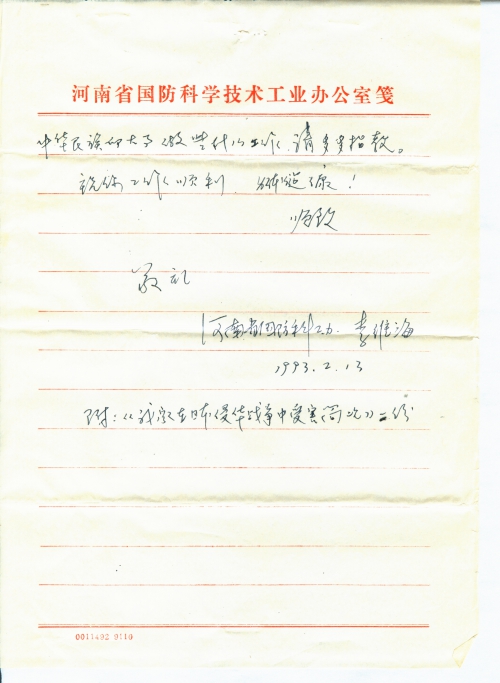 河南省国防科学技术工业办公室笺
中华民族的大事做些什么工作,请多多指教。
祝您工作顺利,健康!
顺致
敬礼
河南省国防科工办 李维海
1993.2.13
附:《我家在日本侵华战争中受害简况》二份
0011492 9110